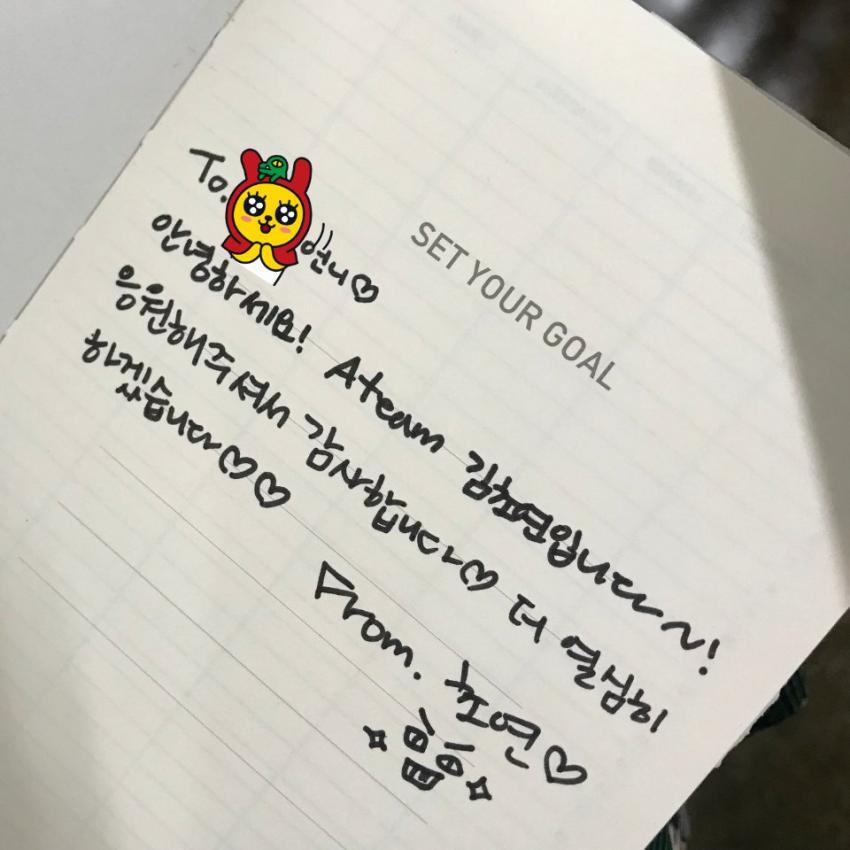 SET YOUR GOAL
To. 언니♡
안녕하세요! Ateam 김초연입니다~!
응원해주셔서 감사합니다♡ 더 열심히
하겠습니다♡♡
From. 초연♡